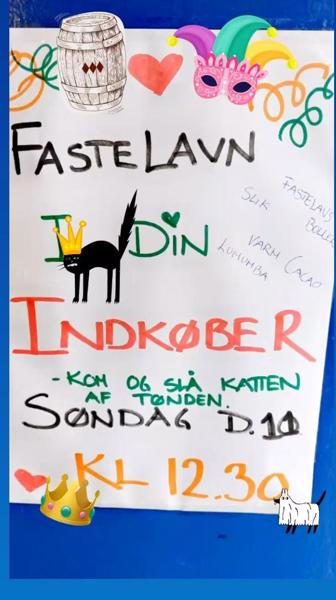 FASTELAVN
I DIN
SLIK
VARM CACAO
LUMUMBA
INDKØBER
- KOM OG SLÅ KATTEN
AF TØNDEN.
SØNDAG D.11
KL 12.30